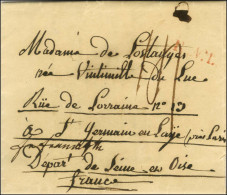 Madame de Lostanges
née Vintimille du Luc
Rüe de Lorraine n° 13
à St Germain en Laÿe (près Paris
Depart de Seine en Oise
france